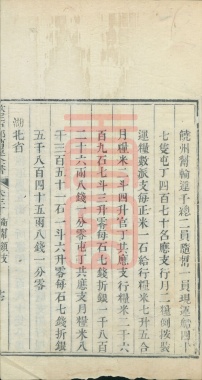 饒州幫輪運千總二員隨幫一員現運船四十
七隻屯丁四百七十名應支行月二糧倒撥兌
運糧數派支每正米一石給行糧米七升五合
月糧米二斗四升官丁共應支行糧米二千六
百九石七斗三升零每石七錢折銀一千八百
二十六兩八錢一分零屯丁共應支月糧米八
千三百五十一石一斗六升零每石七錢折銀
五千八百四十五兩八錢一分零
湖北省